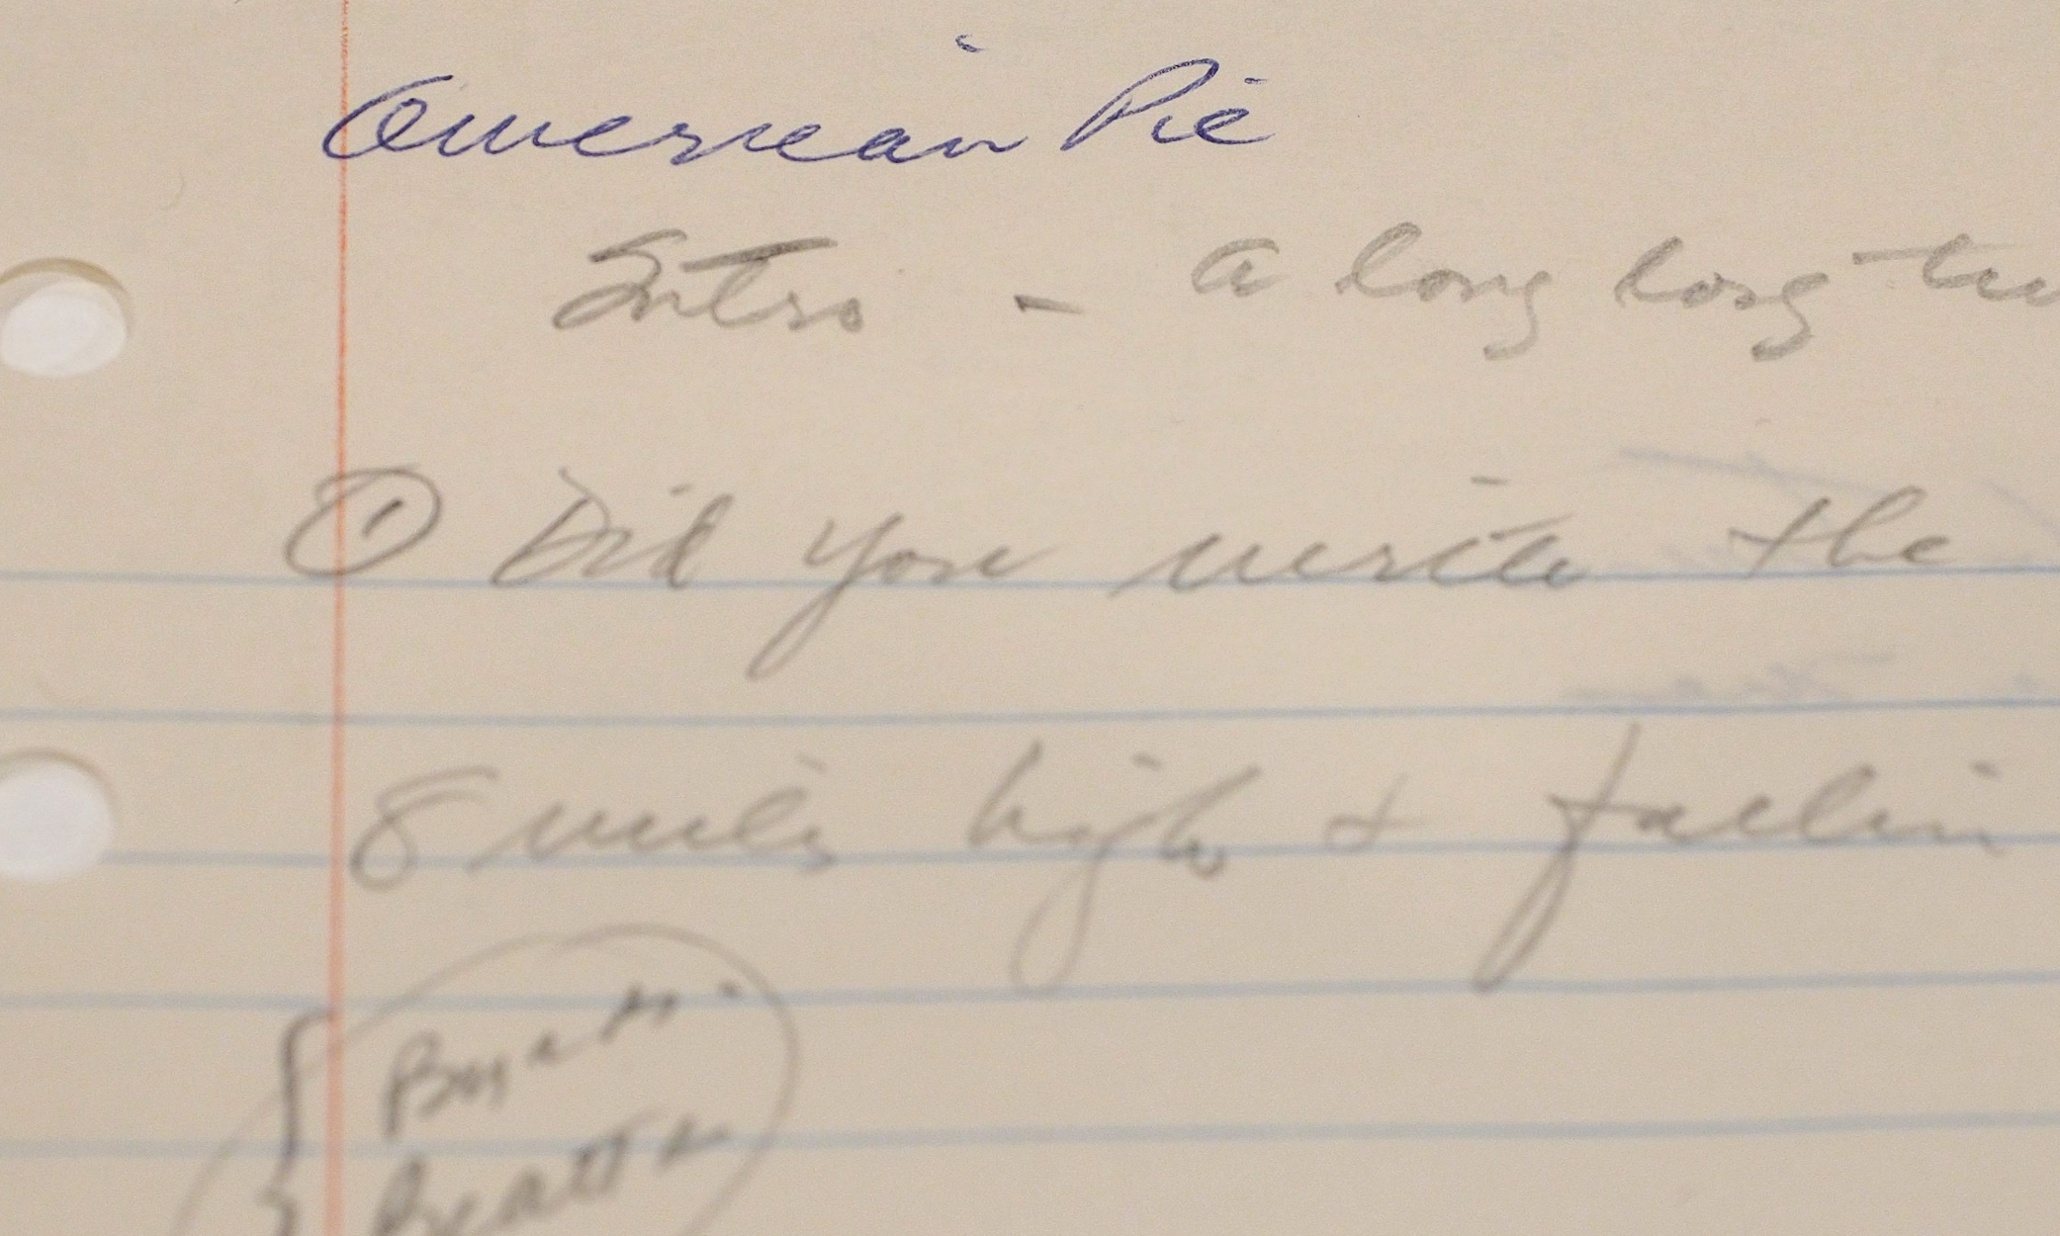 American Pie
Intro - a long long
① Did you write the
8 miles high & fallin